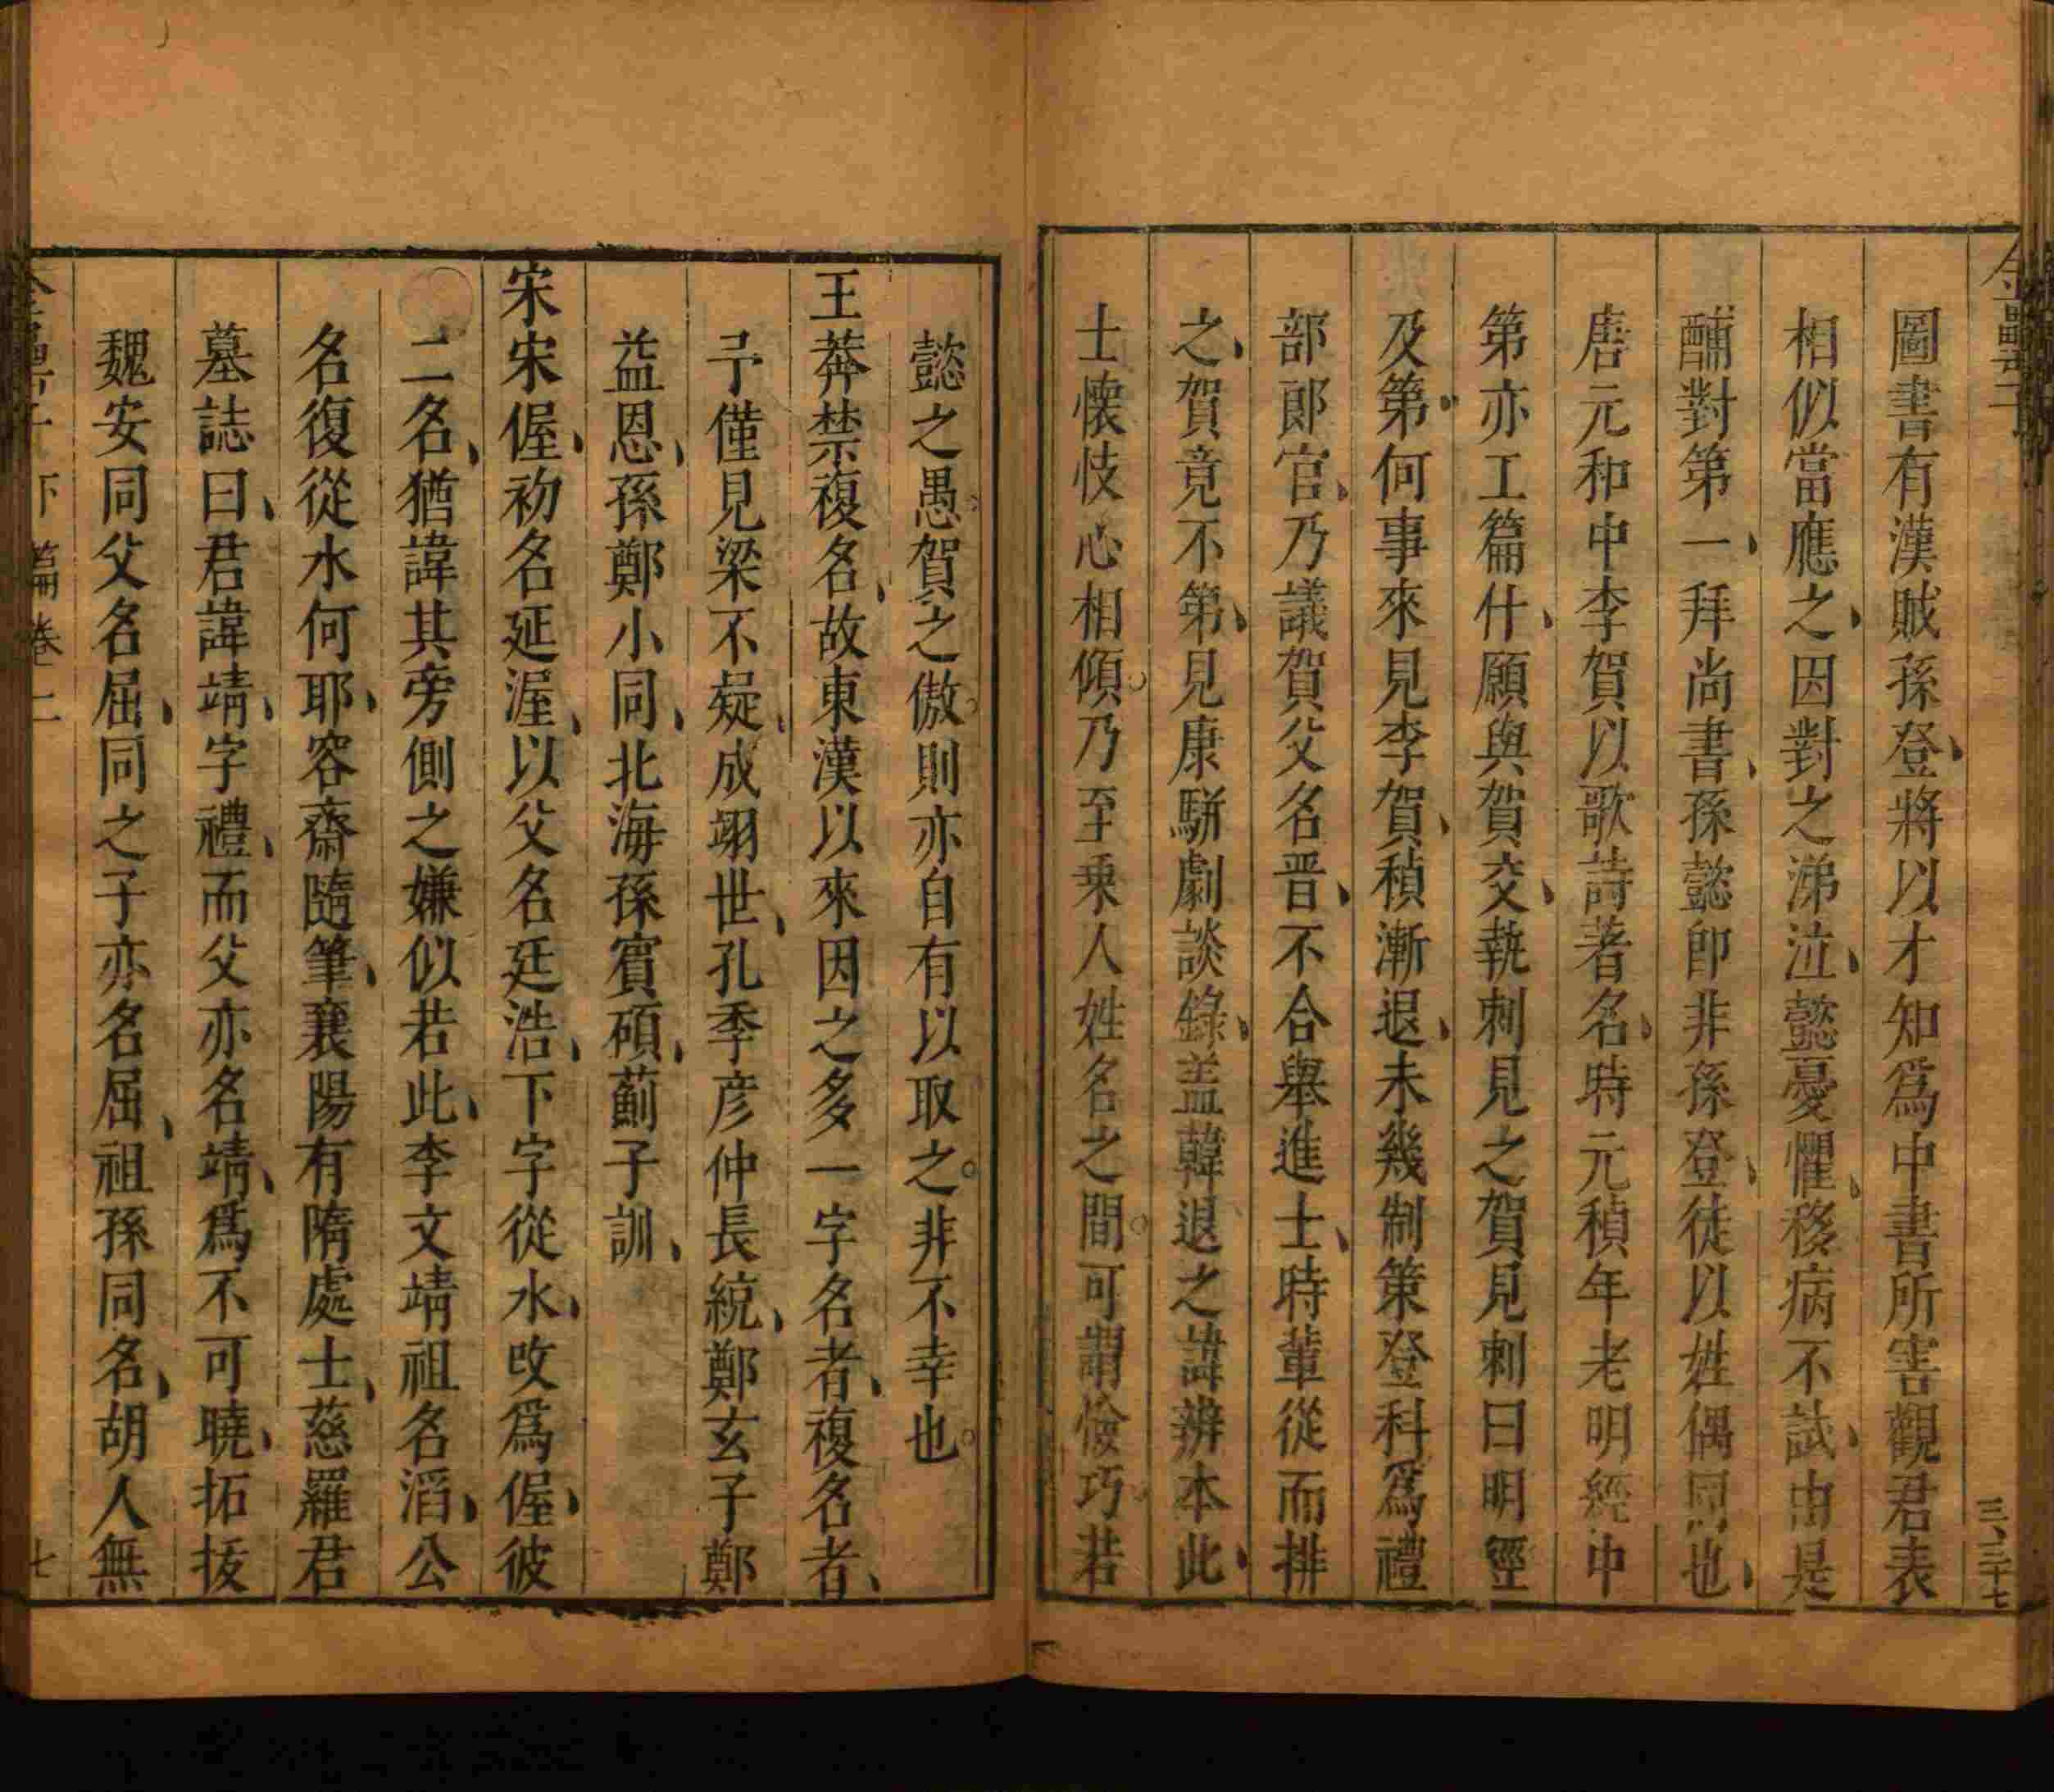 圖書有漢賊孫登、將以才知爲中書所害觀君表
相似當應之、因對之涕泣、懿憂懼、移病不試、由是
酺對第一、拜尚書、孫懿卽非孫登、徒以姓偶同也、
唐元和中李賀以歌詩著名、時元稹年老明經中
第亦工篇什、願與賀交、執刺見之賀見刺曰明經
及第、何事來見李賀、稹漸退、未幾制策登科爲禮
部郎官、乃議賀父名晋、不合舉進士、時輩從而排
之、賀竟不第、見康駢劇談錄、盖韓退之諱辨本此、
士懐忮心相傾。乃至乗人姓名之間。可謂憸巧。若
懿之愚。賀之傲。則亦自有以取之。非不幸也。
王莽禁複名、故東漢以來因之多一字名者、複名者、
予僅見梁不疑、成翊世、孔季彦仲長統、鄭玄子鄭
益恩、孫鄭小同、北海孫賓碩、薊子訓、
宋宋偓、初名延渥、以父名廷浩、下字從水、改爲偓、彼
二名、猶諱其旁側之嫌似若此、李文靖祖名滔、公
名復從水何耶、容齋隨筆、襄陽有隋處士、慈羅君
墓誌曰、君諱靖、字禮、而父亦名靖、爲不可曉、拓拔
魏安同父名屈、同之子亦名屈、祖孫同名、胡人無
下篇卷二
七